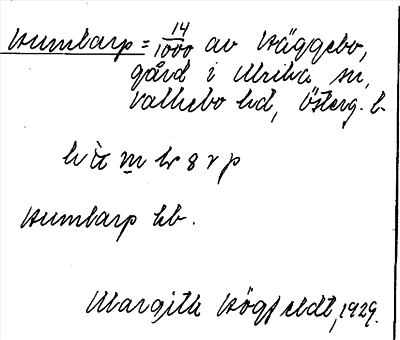 Humlarp = 14/1000 av Häggebo,
gård i Ulrika sn,
Valkebo hd, Österg. l.
Humlarp kb.
Margith Högfeldt, 1929.